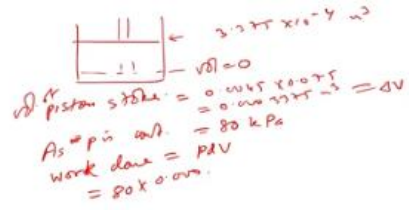 3.375 x10-4 m3
vol = 0
vol. of piston stroke = 0.0045 x 0.075
= 0.0003375 m3 = ΔV
As p is cont. = 80 kPa
work done = pdV
= 80 x 0.000.